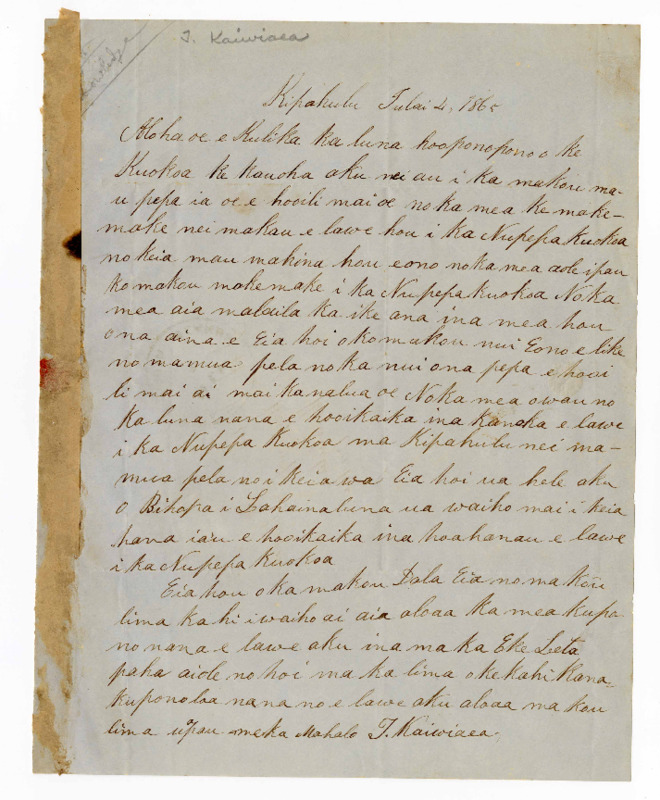 J. Kaiwiaea
Kipahulu Iulai 4, 1865
Aloha oe e Kulika ka luna hooponopono o ke
Kuokoa Ke kauoha aku nei au i ka makou ma-
u pepa ia oe e hooili mai oe no ka mea ke make-
make nei makou e lawe hou i ka Nupepa Kuokoa
no keia mau mahina hou eono no ka mea aole i pau
ko makou makemake i ka Nupepa Kuokoa No ka
mea aia malaila ka ike ana i na mea hou
o na aina e Eia hoi o ko makou nui Eono e like
no mamua pela no ka nui o na pepa e hooi
li mai ai mai kanalua oe No ka mea owau no
Ka luna nana e hooikaika i na kanaka e lawe
i ka Nupepa Kuokoa ma Kipahulu nei ma-
mua pela no i keia wa Eia hoi ua hele aku
o Bihopa i Lahainaluna ua waiho mai i keia
hana ia'u e hooikaika i na hoahanau e lawe
i ka Nupepa Kuokoa
Eia hou o ka makou Dala Eia no ma ko'u
lima kahi i waiho ai aia a loaa ka mea kupo
no nana e lawe aku ina ma ka Eke Leta
paha aiole no hoi ma ka lima o kekahi kana-
kupono loa nana no e lawe aku a loaa ma kou
lima u'pau me ka Mahalo J. Kaiwiaea